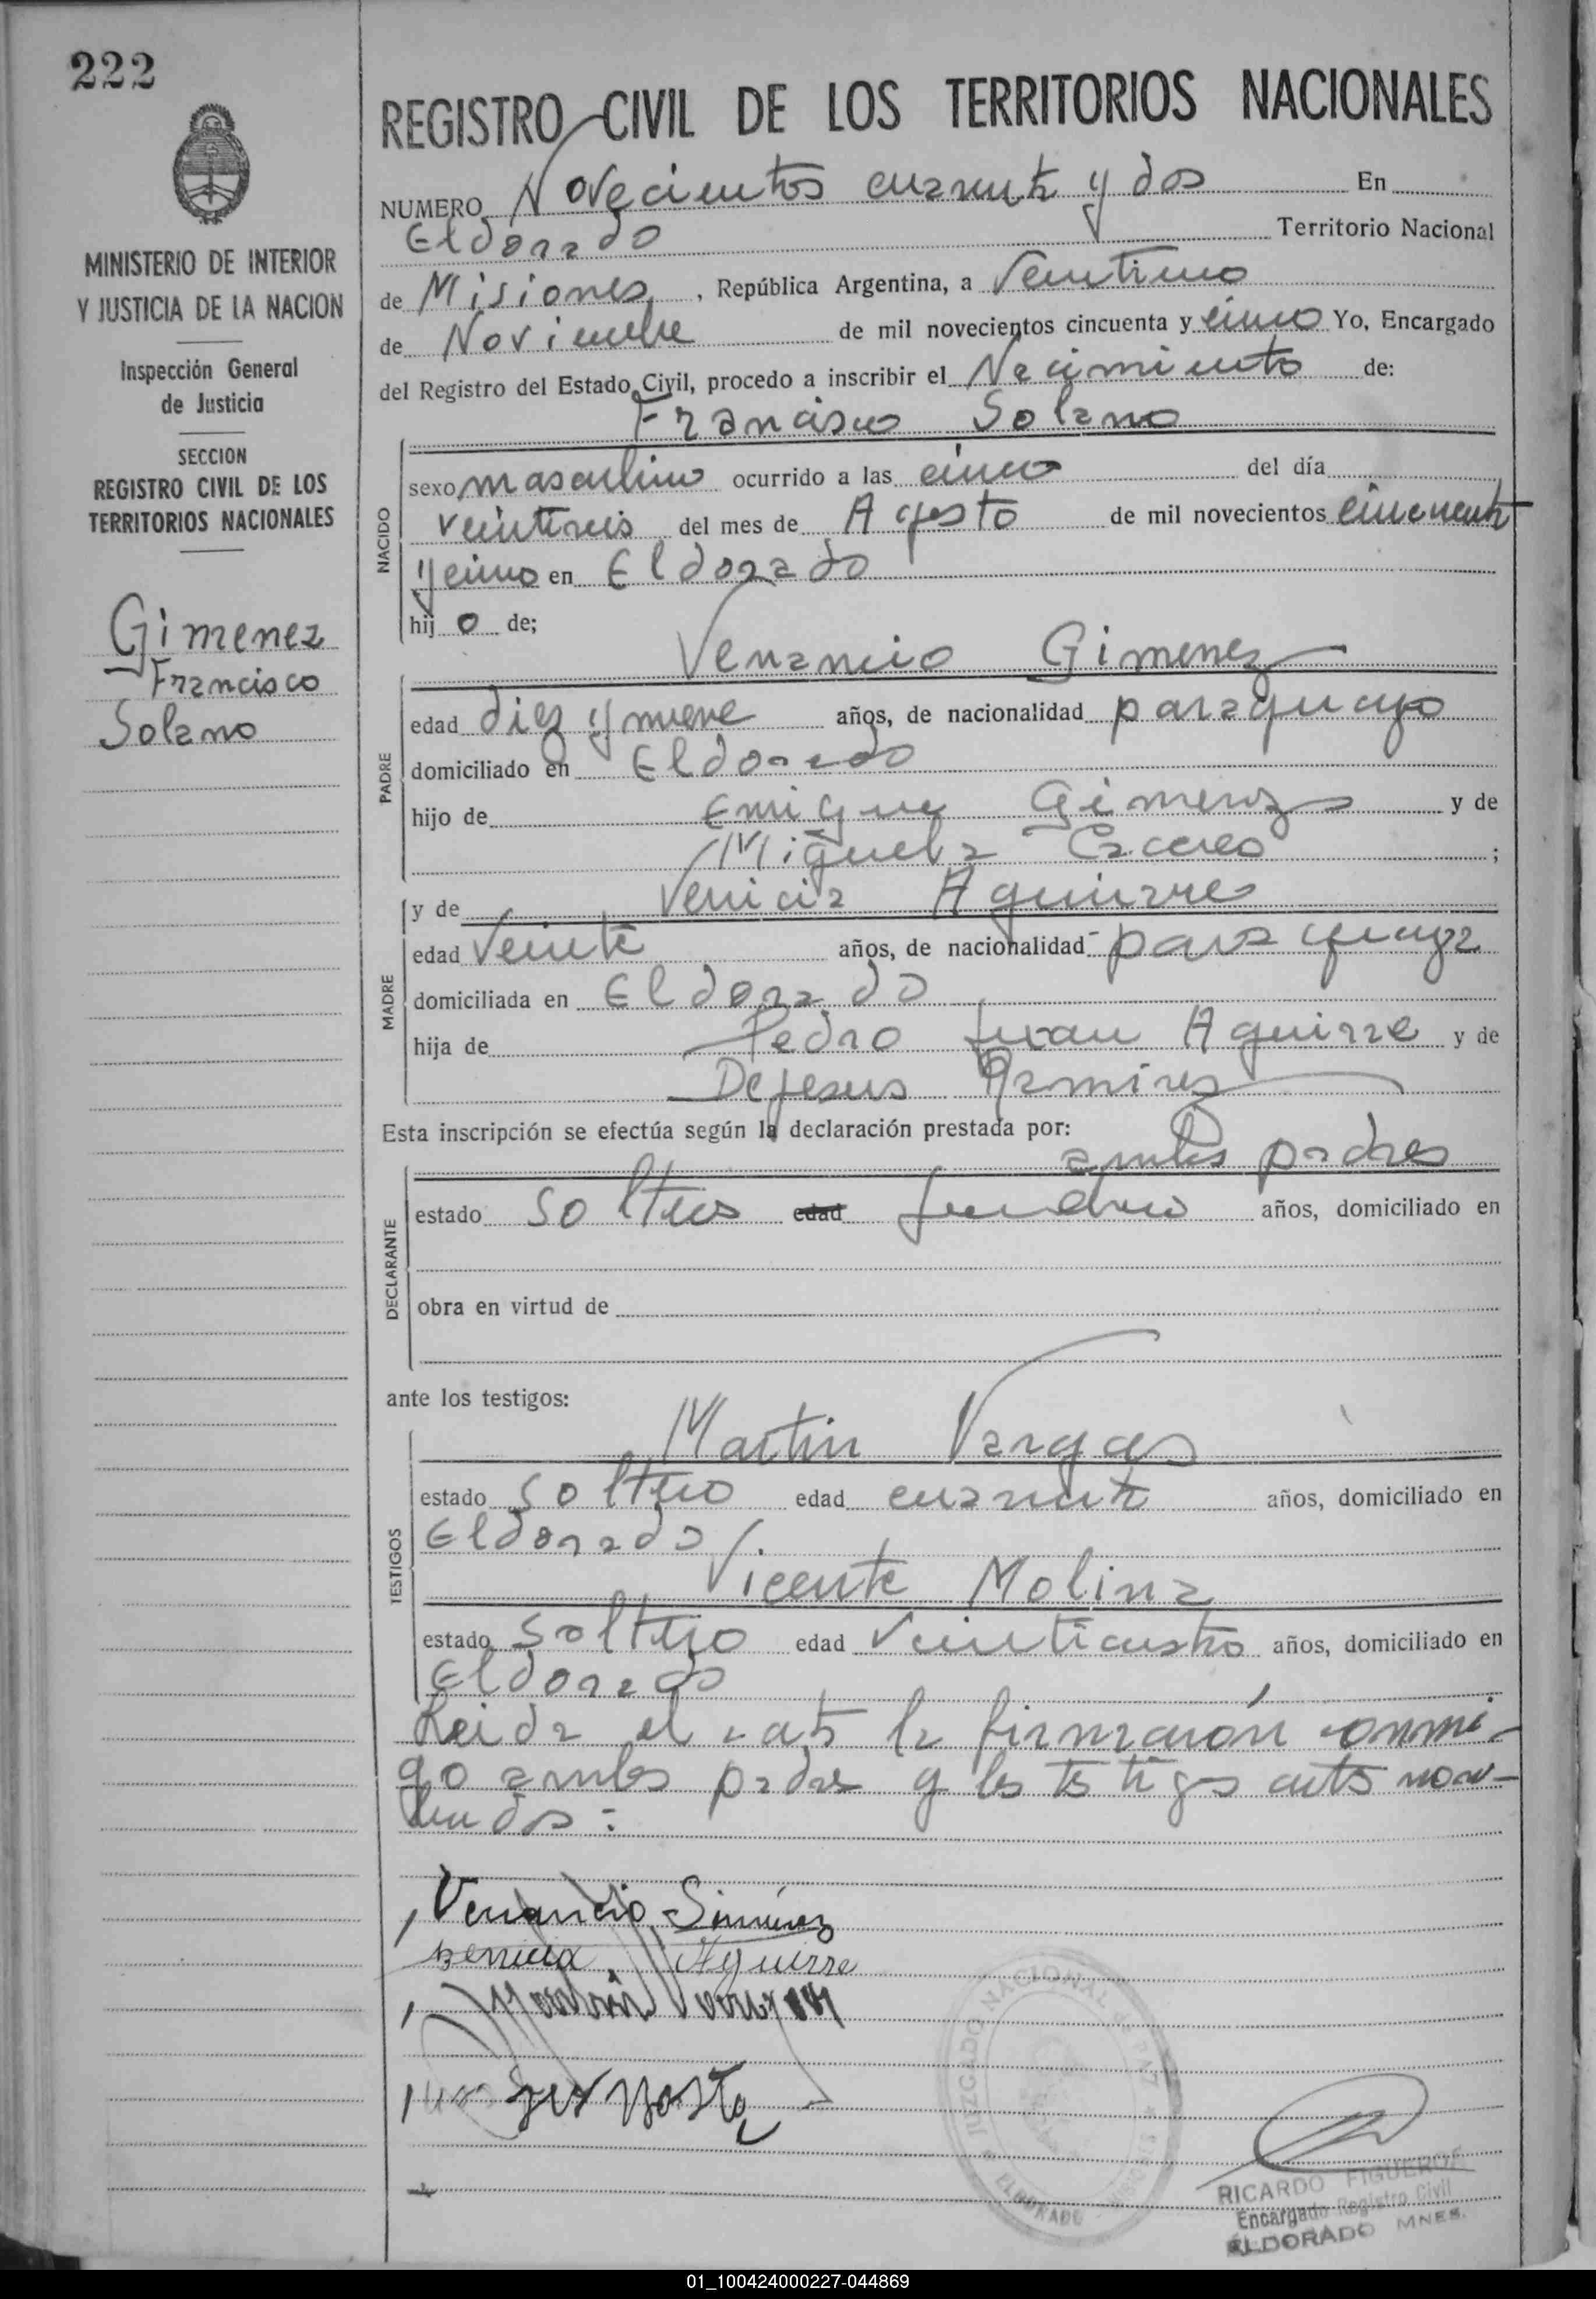 222
MINISTERIO DE INTERIOR
Y JUSTICIA DE LA NACION
Inspección General
de Justicia
SECCION
REGISTRO CIVIL DE LOS
TERRITORIOS NACIONALES
Gimenez
Francisco
Solano
REGISTRO CIVIL DE LOS TERRITORIOS NACIONALES
NUMERO Novecientos cuarenta y dos En
Eldorado Territorio Nacional
de Misiones, República Argentina, a Veintiuno
de Noviembre de mil novecientos cincuenta y cinco Yo, Encargado
del Registro del Estado Civil, procedo a inscribir el Nacimiento de:
Francisco Solano
NACIDO
sexo masculino ocurrido a las cinco del día
veintiseis del mes de Agosto de mil novecientos cincuenta
y cinco en Eldorado
hijo de;
Venancio Gimenez
PADRE
edad diez y nueve años, de nacionalidad paraguayo
domiciliado en Eldorado
hijo de Gimenez y de
Miguela Caceres ;
y de Aguirre
MADRE
edad Veinte años, de nacionalidad paraguaya
domiciliada en Eldorado
hija de Pedro Juan Aguirre y de
Dejesus Ramirez
Esta inscripción se efectúa según la declaración prestada por:
ambos padres
DECLARANTE
estado solteros edad años, domiciliado en
obra en virtud de
ante los testigos:
Martin Vargas
TESTIGOS
estado soltero edad cuarenta años, domiciliado en
Eldorado
Vicente Molina
estado soltero edad Veinticuatro años, domiciliado en
Eldorado
Leida el acta la firmaron conmi-
go ambos padres y los testigos
Venancio Simenez
Aguirre
JUZGADO NACIONAL DE PAZ
ELDORADO MISIONES
RICARDO FIGUEROA
Encargado Registro Civil
ELDORADO MNES.
01_100424000227-044869